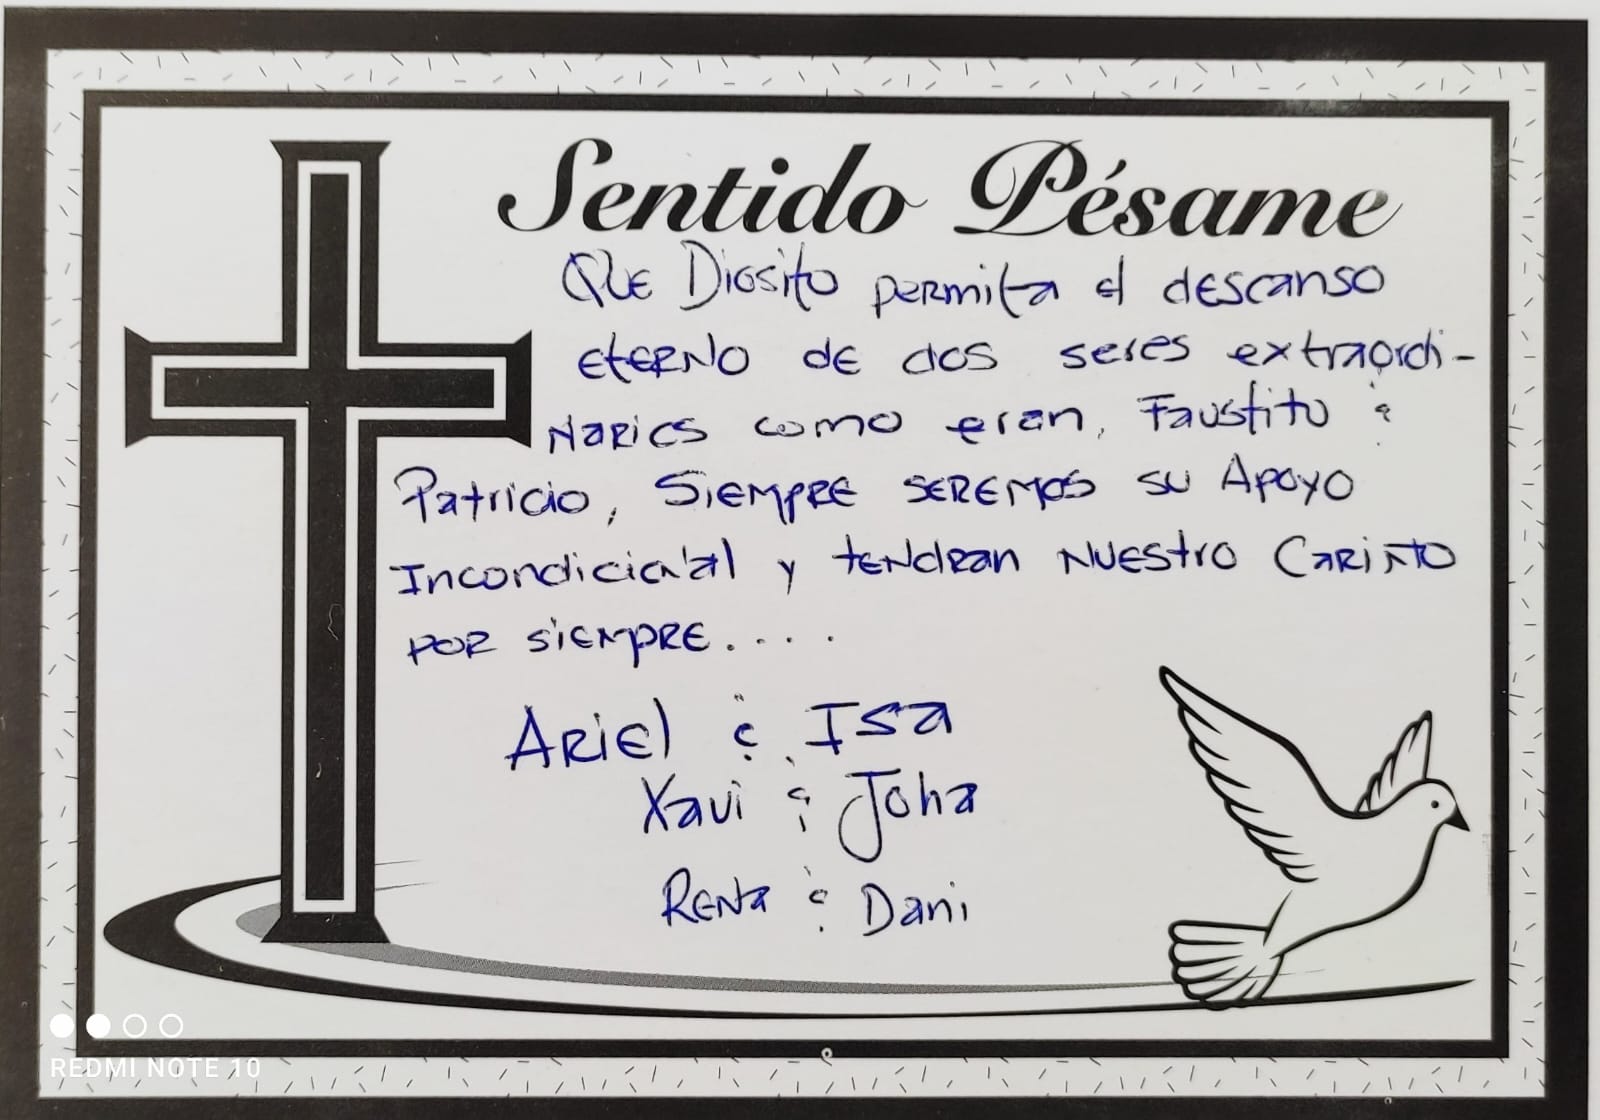 Sentido Pésame
Que Diosito permita el descanso
eterno de dos seres extraordi-
narios como eran, Faustito &
Patricio, Siempre seremos su Apoyo
Incondicional y tendran nuestro Cariño
por siempre....
Ariel & Isa
Xavi & Joha
Rena & Dani
REDMI NOTE 10